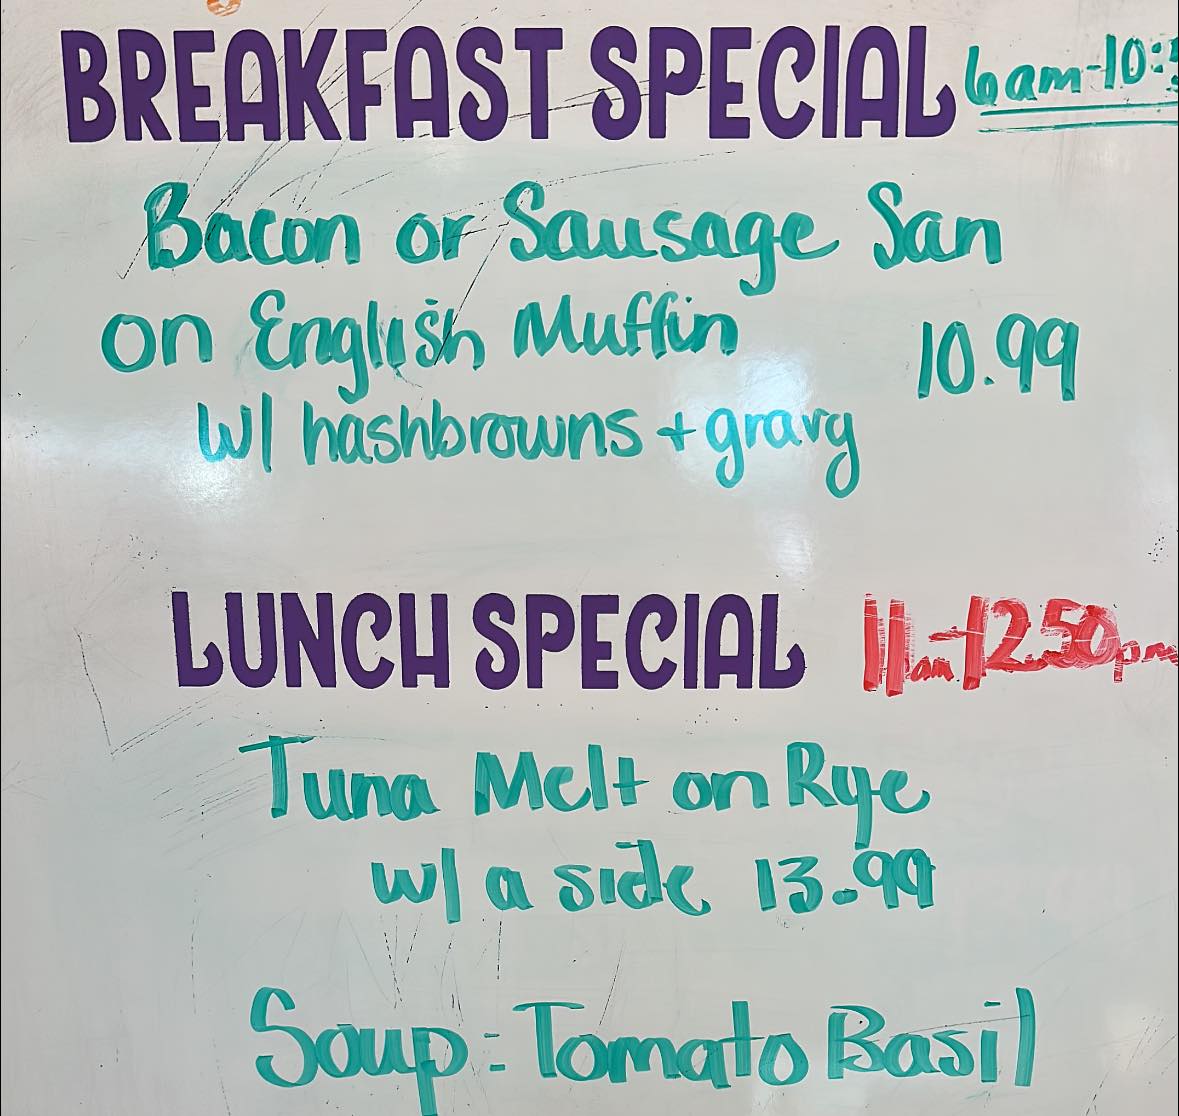 BREAKFAST SPECIAL 6am-10:
Bacon or Sausage San
on English Muffin 10.99
w/ hashbrowns + gravy
LUNCH SPECIAL 11am-12:50pm
Tuna Melt on Rye
w/ a side 13.99
Soup: Tomato Basil